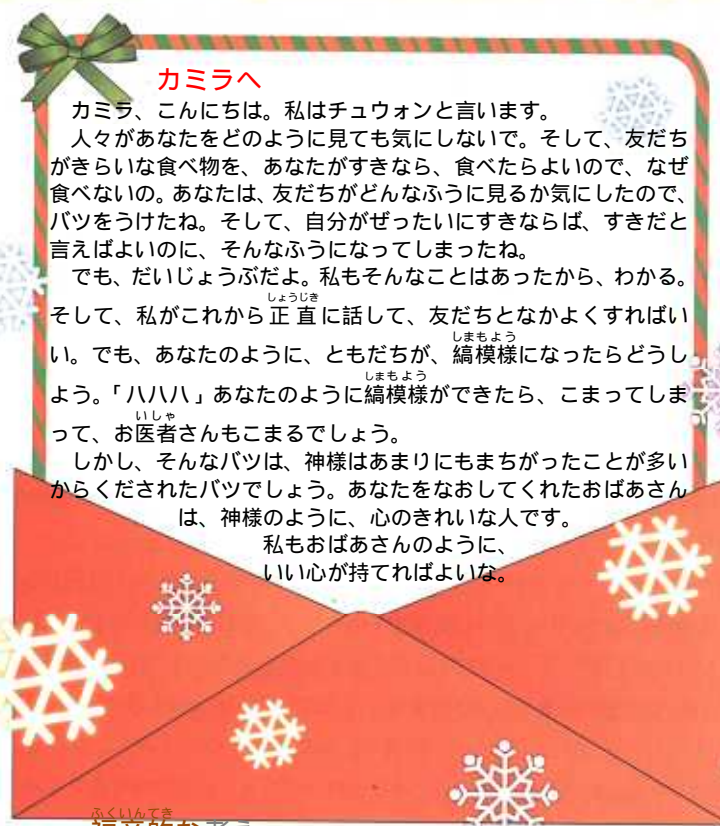 カミラへ
カミラ、こんにちは。私はチュウォンと言います。
人々があなたをどのように見ても気にしないで。そして、友だち
がきらいな食べ物を、あなたがすきなら、食べたらよいので、なぜ
食べないの。あなたは、友だちがどんなふうに見るか気にしたので、
バツをうけたね。そして、自分がぜったいにすきならば、すきだと
言えばよいのに、そんなふうになってしまったね。
でも、だいじょうぶだよ。私もそんなことはあったから、わかる。
しょうじき
そして、私がこれから正直に話して、友だちとなかよくすればい
しまもよう
い。でも、あなたのように、ともだちが、縞模様になったらどうし
しまもよう
よう。「ハハハ」あなたのように縞模様ができたら、こまってしま
いしゃ
って、お医者さんもこまるでしょう。
しかし、そんなバツは、神様はあまりにもまちがったことが多い
からくだされたバツでしょう。あなたをなおしてくれたおばあさん
は、神様のように、心のきれいな人です。
私もおばあさんのように、
いい心が持てればよいな。
ふくいんてき